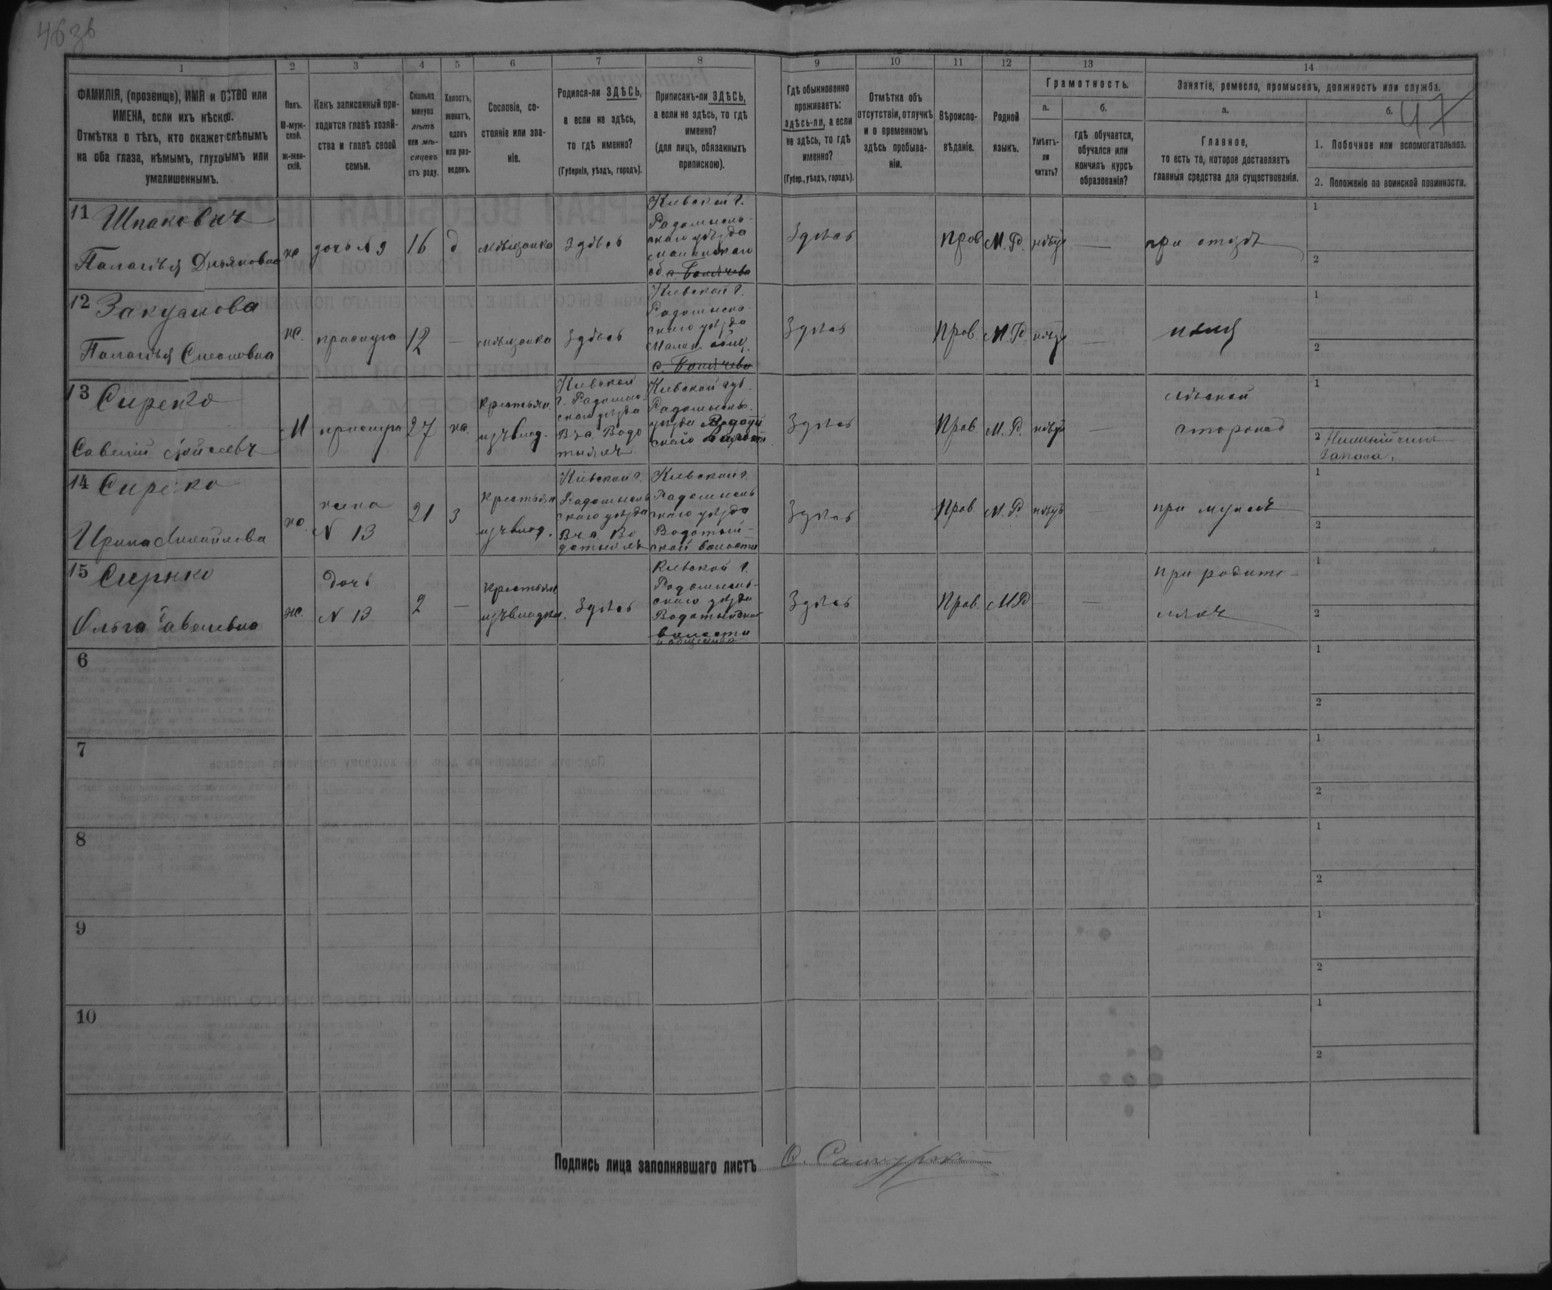 46 зв
47
1
2
3
4
5
6
7
8
9
10
11
12
13
14
ФАМИЛІЯ, (прозвище), ИМЯ и ОТСТВО или
ИМЕНА, если ихъ нѣск.
Отмѣтка о тѣхъ, кто окажется: слѣпымъ
на оба глаза, нѣмымъ, глухонѣмымъ или
умалишеннымъ.
Полъ.
М-муж-
ской.
ж-жен-
скій.
Какъ записанный при-
ходится главѣ хозяй-
ства и главѣ своей
семьи.
Сколько
минуло
лѣтъ
или мѣ-
сяцевъ
отъ роду.
Холостъ,
женатъ,
вдовъ
или раз-
веденъ.
Сословіе, со-
стояніе или зва-
ніе.
Родился-ли ЗДѢСЬ,
а если не здѣсь,
то гдѣ именно?
(Губернія, уѣздъ, городъ).
Приписанъ-ли ЗДѢСЬ,
а если не здѣсь, то гдѣ
именно?
(для лицъ, обязанныхъ
припискою).
Гдѣ обыкновенно
проживаетъ:
здѣсь-ли, а если
не здѣсь, то гдѣ
именно?
(Губер., уѣздъ, городъ).
Отмѣтка объ
отсутствіи, отлучкѣ
и о временномъ
здѣсь пребыва-
ніи.
Вѣроиспо-
вѣданіе.
Родной
языкъ.
Грамотность.
а.
б.
Умѣетъ-
ли
читать?
гдѣ обучается,
обучался или
кончилъ курсъ
образованія?
Занятіе, ремесло, промыселъ, должность или служба.
а.
б.
Главное,
то есть то, которое доставляетъ
главныя средства для существованія.
1. Побочное или вспомогательное.
2. Положеніе по воинской повинности.
11 Шпаковичъ
Палагѣя Демяновна
ж
дочь № 9
16
д
мѣщанка
Здѣсь
Кіевской г.
Радомысль-
скаго уѣзда
Здѣсь
Прав
М. Р.
нѣтъ
—
при отцѣ
1
2
12
Палагѣя
ж.
прислуга
12
—
мѣщанка
Здѣсь
Кіевской г.
Радомысль
скаго уѣзда
Здѣсь
Прав
М. Р.
нѣтъ
—
няня
1
2
13 Сиренко
Савелій
М
прислуга
27
ж.
Крестьян
изъ влад.
Кіевской
г. Радомысль
скаго уѣзда
Кіевской губ.
Радомысль.
уѣзда
Здѣсь
Прав
М. Р.
нѣтъ
—
сторожъ
1
2
запаса.
14 Сиренко
Ирина Михайлова
ж.
жена
№ 13
21
з
Крестьян
изъ влад.
Кіевской г.
Радомысль
скаго уѣзда
Кіевской г.
Радомысль
скаго уѣзда
Водотый-
ской волости
Здѣсь
Прав
М. Р.
нѣтъ
при мужѣ
1
2
15 Сиренко
Ольга Савельевна
ж.
Дочь
№ 13
2
—
Крестьян
изъ владѣл.
Здѣсь
Кіевской г.
Радомысль-
скаго уѣзда
волости
Здѣсь
Прав
М. Р.
—
при родите-
ляхъ
1
2
6
1
2
7
1
2
8
1
2
9
1
2
10
1
2
Подпись лица заполнявшаго листъ